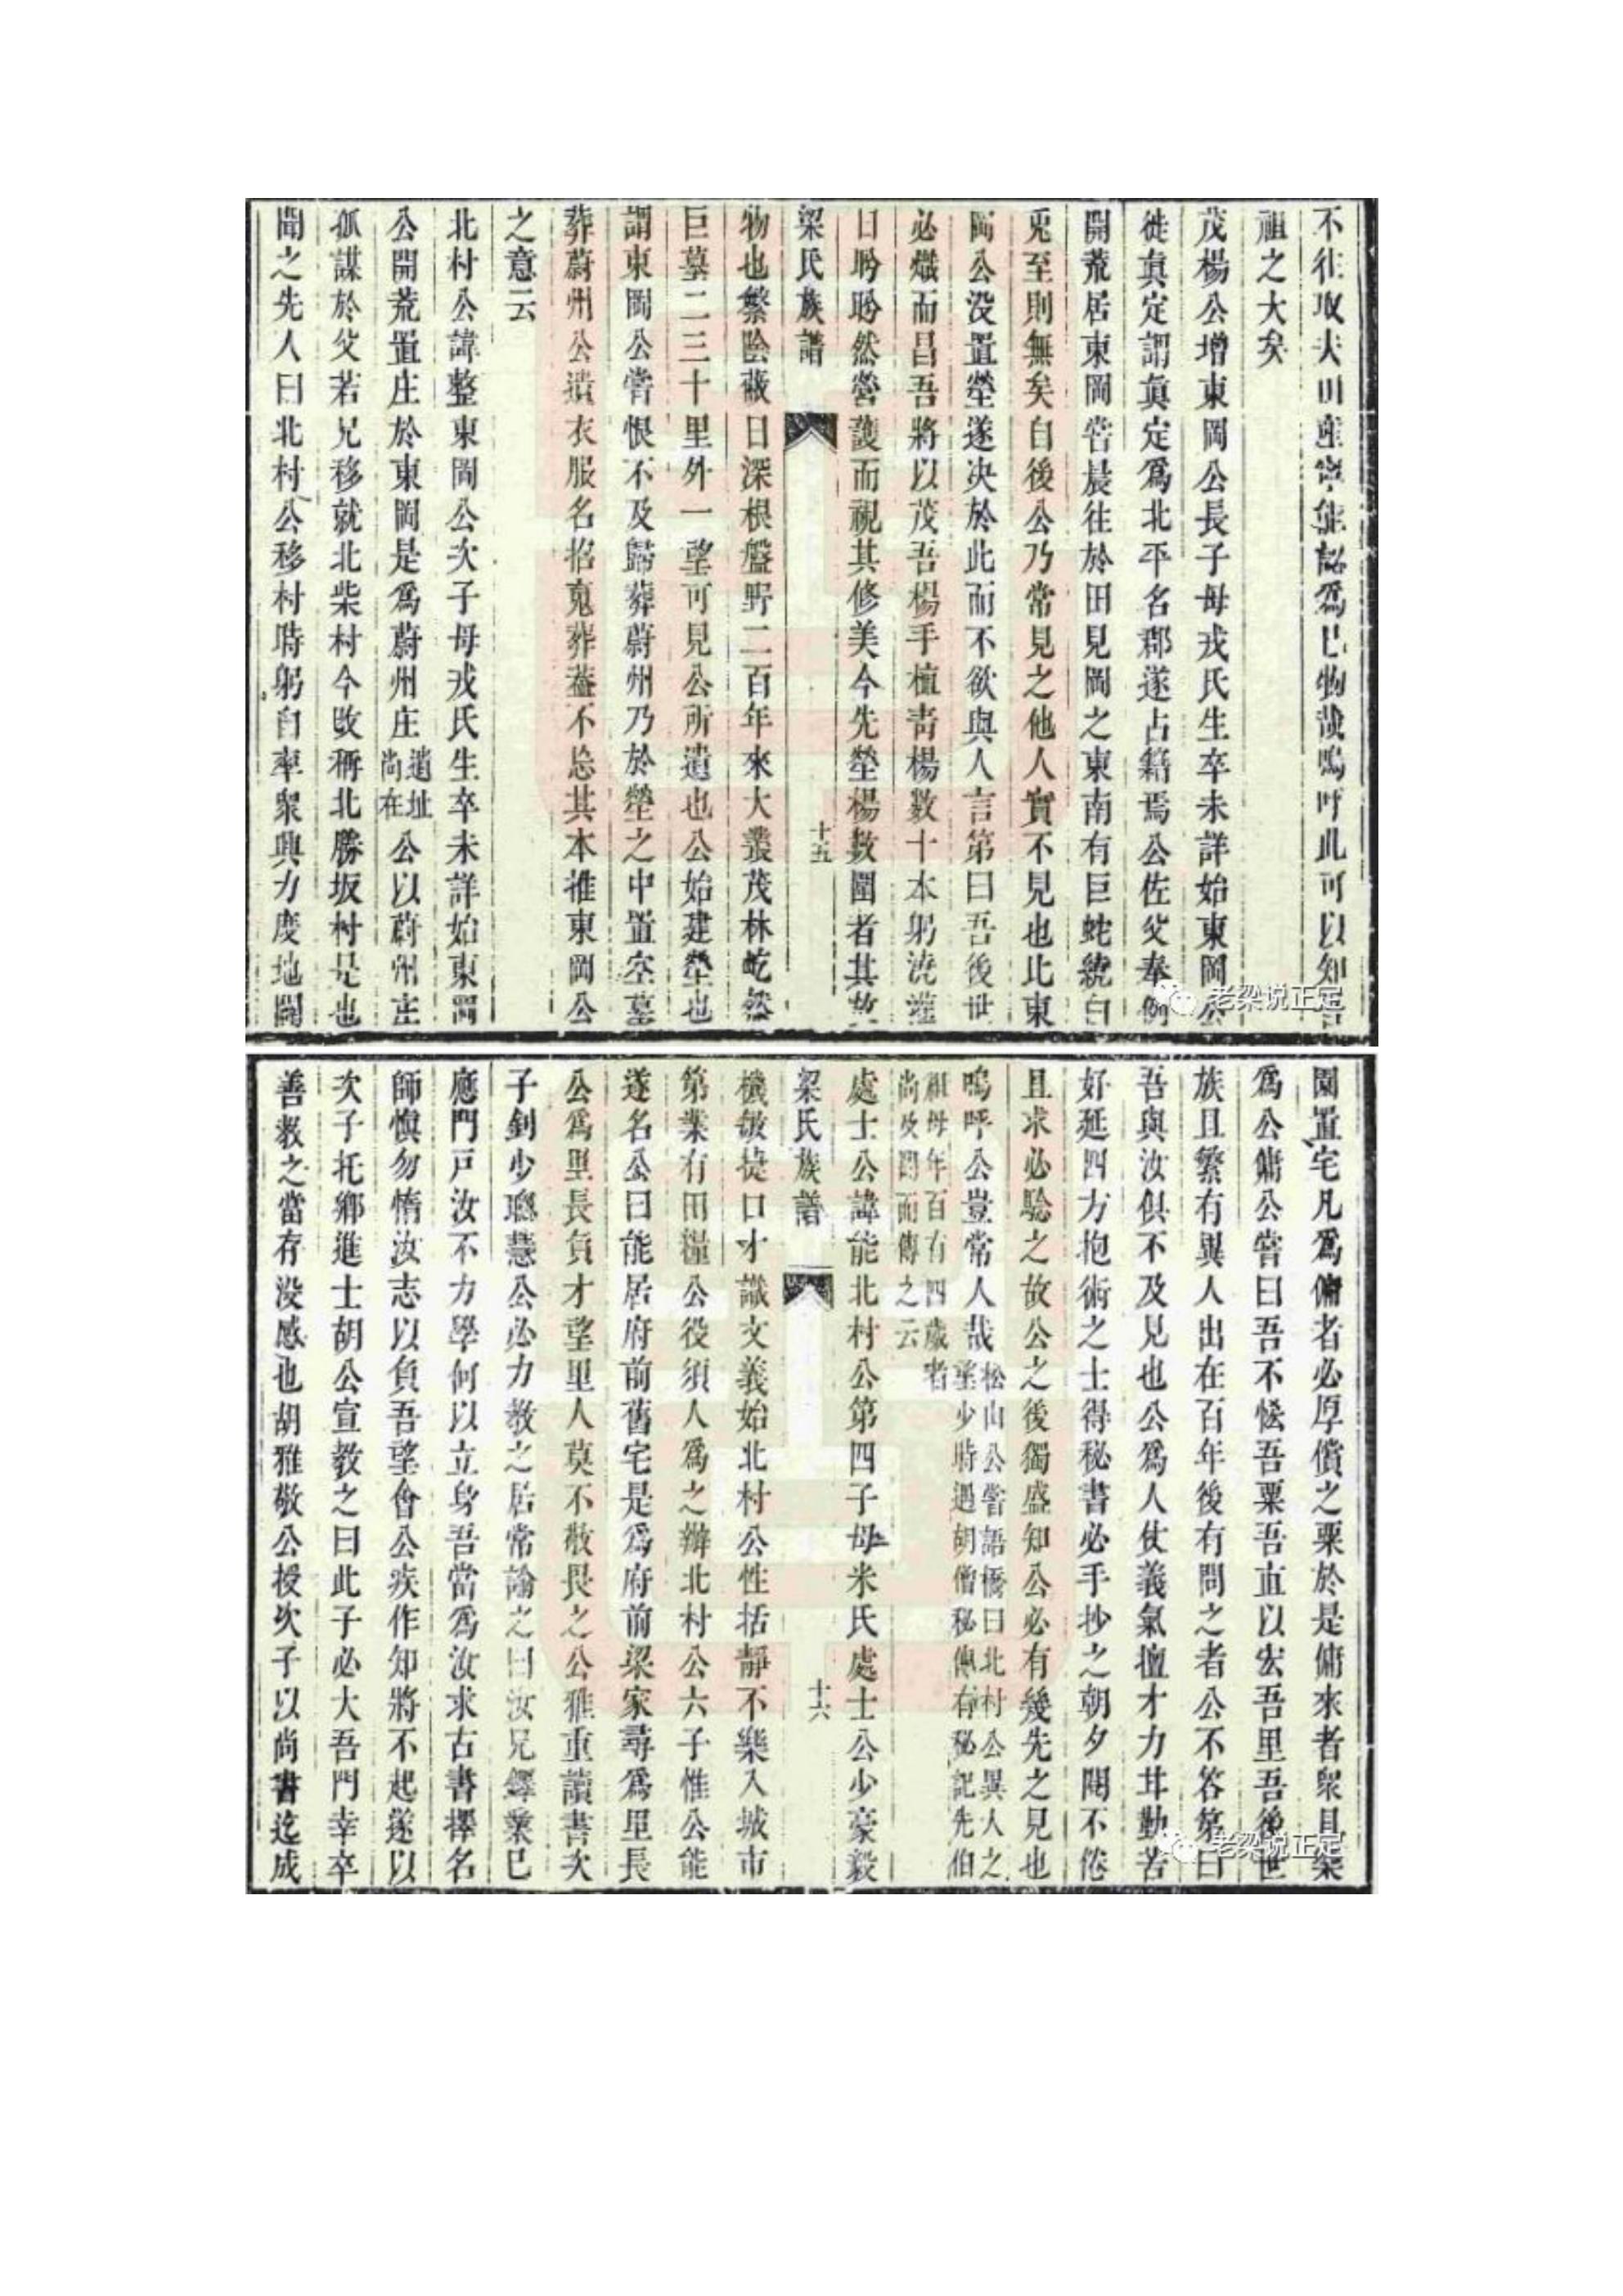 不往取夫田產寧能認為己物哉嗚呼此可以知吾
祖之大矣
茂楊公增東岡公長子母戎氏生卒未詳始東岡公
徙眞定謂眞定爲北平名郡遂占籍焉公佐父奉例
開荒居東岡嘗晨往於田見岡之東南有巨蛇繞白
兎至則無矣自後公乃常見之他人實不見也比東
岡公没置塋遂决於此而不欲與人言第曰吾後世
必熾而昌吾將以茂吾楊手植靑楊數十本躬澆灌
日盻盻然營護而視其修美今先塋楊數圍者其故
梁氏族譜
十五
物也繁陰蔽日深根盤野二百年來大叢茂林屹然
巨墓二三十里外一望可見公所遺也公始建塋也
謂東岡公嘗恨不及歸葬蔚州乃於塋之中置空墓
葬蔚州公遺衣服名招䰟葬葢不忘其本推東岡公
之意云
北村公諱整東岡公次子母戎氏生卒未詳始東岡
公開荒置庄於東岡是爲蔚州庄遺址尚在公以蔚州庄
孤謀於父若兄移就北柴村今改稱北勝坂村是也
聞之先人曰北村公移村時躬自率衆興力度地闢
園置宅凡爲傭者必厚償之粟於是傭來者衆且樂
爲公傭公嘗曰吾不恡吾粟吾直以宏吾里吾後世
族且繁有異人出在百年後有問之者公不答第曰
吾與汝俱不及見也公爲人仗義氣擅才力甘勤苦
好延四方抱術之士得秘書必手抄之朝夕閱不倦
且求必驗之故公之後獨盛知公必有幾先之見也
嗚呼公豈常人哉松山公嘗語橋曰北村公異人之
塋少時遇胡僧秘傳有秘記先伯
祖母年百有四歲者
尚及聞而傳之云
處士公諱能北村公第四子母米氏處士公少豪毅
梁氏族譜
十六
機敏捷口才識文義始北村公性括靜不樂入城市
第業有田糧公役須人爲之辦北村公六子惟公能
遂名公曰能居府前舊宅是爲府前梁家尋爲里長
公爲里長負才望里人莫不敬畏之公雅重讀書次
子釗少聰慧公必力教之居常諭之曰汝兄鐸業已
應門戸汝不力學何以立身吾當爲汝求古書擇名
師愼勿惰汝志以負吾望會公疾作知將不起遂以
次子托鄉進士胡公宣教之曰此子必大吾門幸卒
善教之當存没感也胡雅敬公授次子以尚書迄成
老梁说正定
老梁说正定